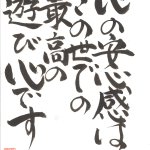 心の安心感は
この世での
最高の
遊び心です